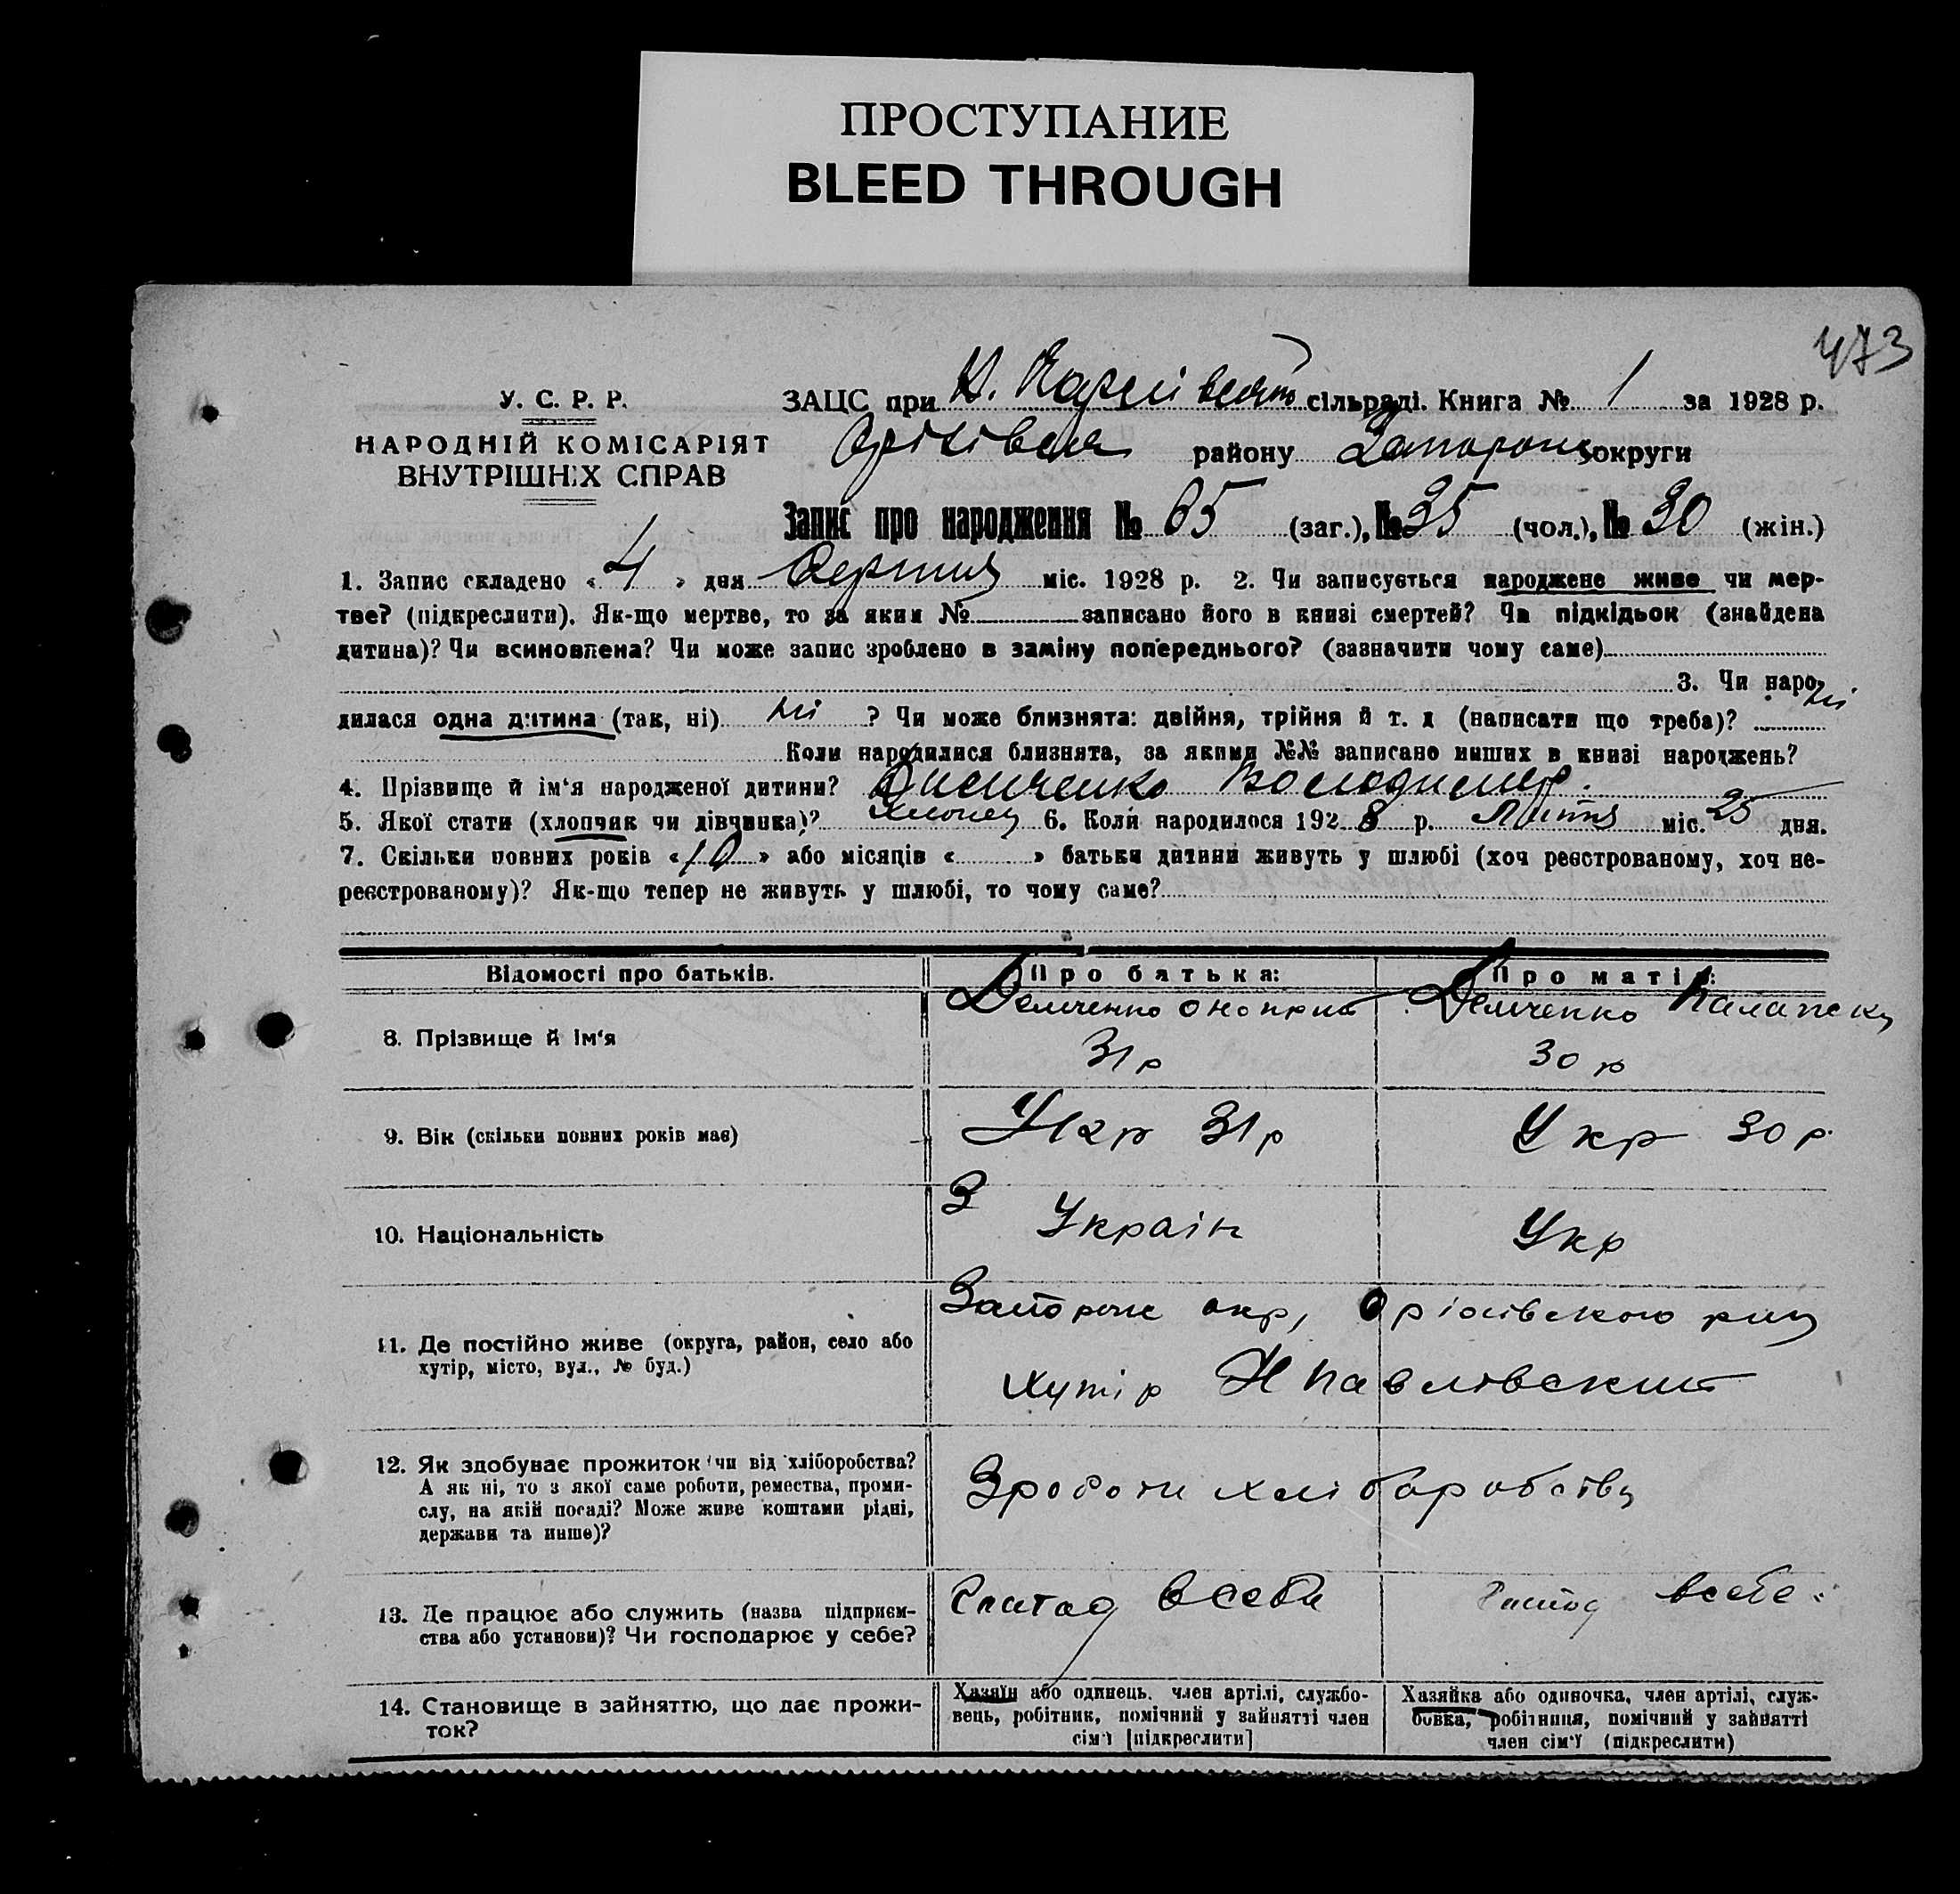 ПРОСТУПАНИЕ
BLEED THROUGH
473
У. С. Р. Р.
НАРОДНІЙ КОМІСАРІЯТ
ВНУТРІШНІХ СПРАВ
ЗАЦС при сільраді. Книга № 1 за 1928 р.
району Запорож округи
Запис про народження № 65 (заг.), № 35 (чол.), № 30 (жін.)
1. Запис складено «4» дня Серпня міс. 1928 р. 2. Чи записується народжене живе чи мер-
тве? (підкреслити). Як-що мертве, то за яким № записано його в книзі смертей? Чи підкідьок (знайдена
дитина)? Чи всиновлена? Чи може запис зроблено в заміну попереднього? (зазначити чому саме)
3. Чи наро-
дилася одна дитина (так, ні) ні ? Чи може близнята: двійня, трійня й т. д (написати що треба)? ні
Коли народилися близнята, за якими №№ записано инших в книзі народжень?
4. Прізвище й ім'я народженої дитини? Володимир.
5. Якої стати (хлопчик чи дівчинка)? хлопец 6. Коли народилося 1928 р. міс. 25 дня.
7. Скільки повних років «10» або місяців « » батьки дитини живуть у шлюбі (хоч реєстрованому, хоч не-
реєстрованому)? Як-що тепер не живуть у шлюбі, то чому саме?
Відомості про батьків. Про батька: Про матір:
8. Прізвище й ім'я Демченко Оноприй Демченко
31 р 30 р
9. Вік (скільки повних років має) Укр 31 р Укр 30 р.
10. Національність З Україн Укр
11. Де постійно живе (округа, район, село або
хутір, місто, вул., № буд.)
Запорож окр, Оріхівського
хутір Н Павловский
12. Як здобуває прожиток чи від хліборобства?
А як ні, то з якої саме роботи, ремества, проми-
слу, на якій посаді? Може живе коштами рідні,
держави та инше)?
Зроботи хліборобства
13. Де працює або служить (назва підприєм-
ства або установи)? Чи господарює у себе?
всебе всебе.
14. Становище в зайняттю, що дає прожи-
ток?
Хазяїн або одинець, член артілі, службо-
вець, робітник, помічний у зайнятті член
сім'ї [підкреслити]
Хазяйка або одиночка, член артілі, служ-
бовка, робітниця, помічний у зайнятті
член сім'ї (підкреслити)